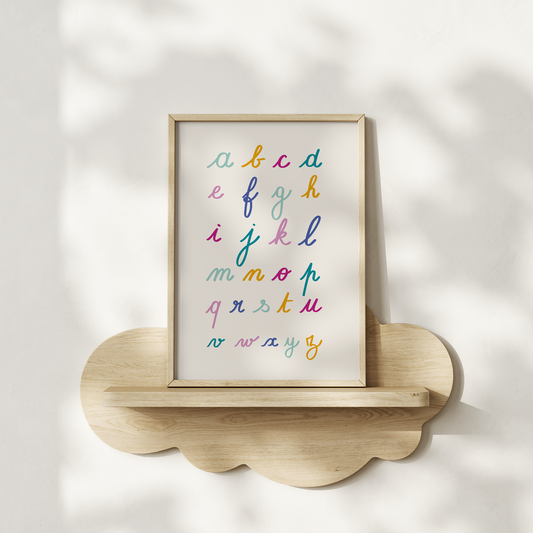 a b c d
e f g h
i j k l
m n o p
q r s t u
v w x y z